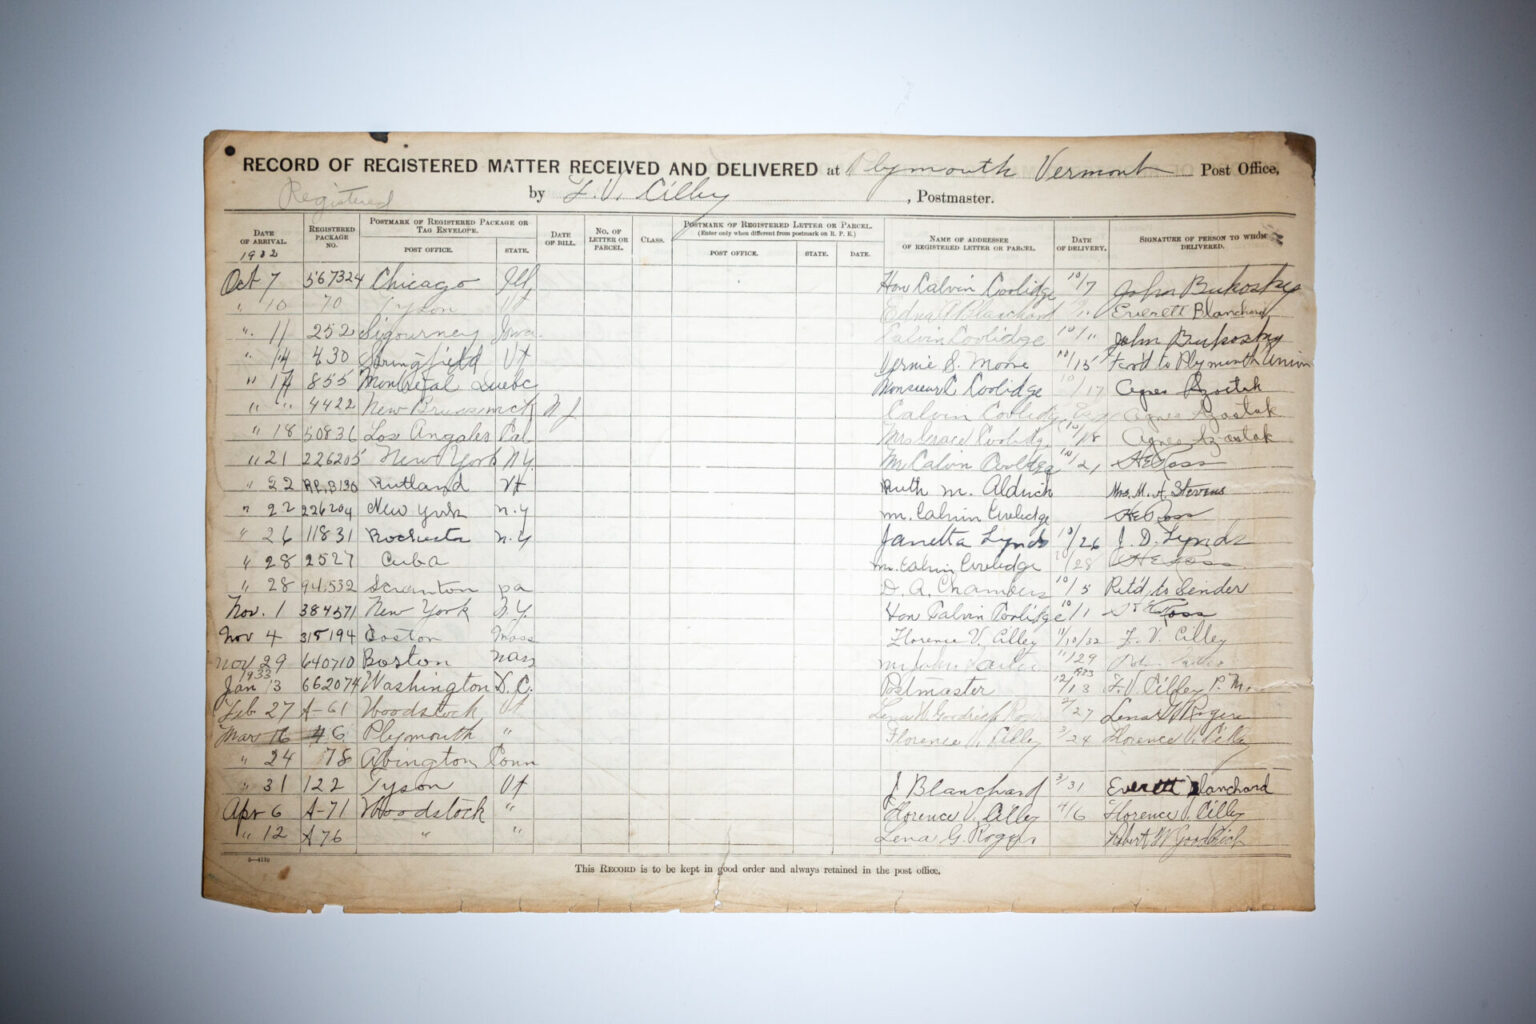 RECORD OF REGISTERED MATTER RECEIVED AND DELIVERED at Plymouth Vermont Post Office,
Registered by F. V. Cilley, Postmaster.
DATE OF ARRIVAL. REGISTERED PACKAGE NO. POSTMARK OF REGISTERED PACKAGE OR TAG ENVELOPE. POST OFFICE. STATE. DATE OF BILL. NO. OF LETTER OR PARCEL. CLASS. POSTMARK OF REGISTERED LETTER OR PARCEL. (Enter only when different from postmark on R. P. E.) POST OFFICE. STATE. DATE. NAME OF ADDRESSEE OF REGISTERED LETTER OR PARCEL. DATE OF DELIVERY. SIGNATURE OF PERSON TO WHOM DELIVERED.
1932
Oct 7 567324 Chicago Ill Hon Calvin Coolidge 10/7 John Bukosky
" 10 70 Tyson Vt Edna A Blanchard Everett Blanchard
" 11 252 Sigourney Iowa Calvin Coolidge 10/11 John Bukosky
" 14 430 Springfield Vt Vernie S. Moore 10/15 Ford to Plymouth Union
" 17 855 Montreal Quebc Monsieur C Coolidge 10/17 Agnes
" " 4422 New Brunswick N J Calvin Coolidge Agnes
" 18 50836 Los Angales Cal Mrs Grace Coolidge 10/18 Agnes
" 21 226205 New York N.Y. Mr Calvin Coolidge 10/21 H E Ross
" 22 RP.B130 Rutland Vt Ruth M. Aldrich Mrs. M. A. Stevens
" 22 226204 New York n.y Mr. Calvin Coolidge H E Ross
" 26 11831 Rochester N.Y Janetta Lynds 10/26 J. D. Lynds
" 28 2527 Cuba Mr. Calvin Coolidge 10/28 H E Ross
" 28 94532 Scranton pa D. A. Chambers 10/5 Ret'd to Sender
Nov. 1 384571 New York N.Y. Hon Calvin Coolidge 10/1 Ross
Nov 4 315194 Boston Mass Florence V. Cilley 11/10/32 F. V. Cilley
Nov 29 640710 Boston Mass Mr John 11/29
1933
Jan 13 662074 Washington D.C. Postmaster 12/13 F. V. Cilley P. M.
Feb 27 A-61 Woodstock Vt Lena W Goodrich 2/27 Lena W Rogers
Mar 16 46 Plymouth " Florence V. Cilley 3/24 Florence V. Cilley
" 24 78 Abington Conn
" 31 122 Tyson Vt J Blanchard 3/31 Everett Blanchard
Apr 6 A-71 Woodstock " Florence V. Cilley 4/6 Florence V. Cilley
" 12 A76 " " Lena G. Rogers Robert W Goodrich
This RECORD is to be kept in good order and always retained in the post office.